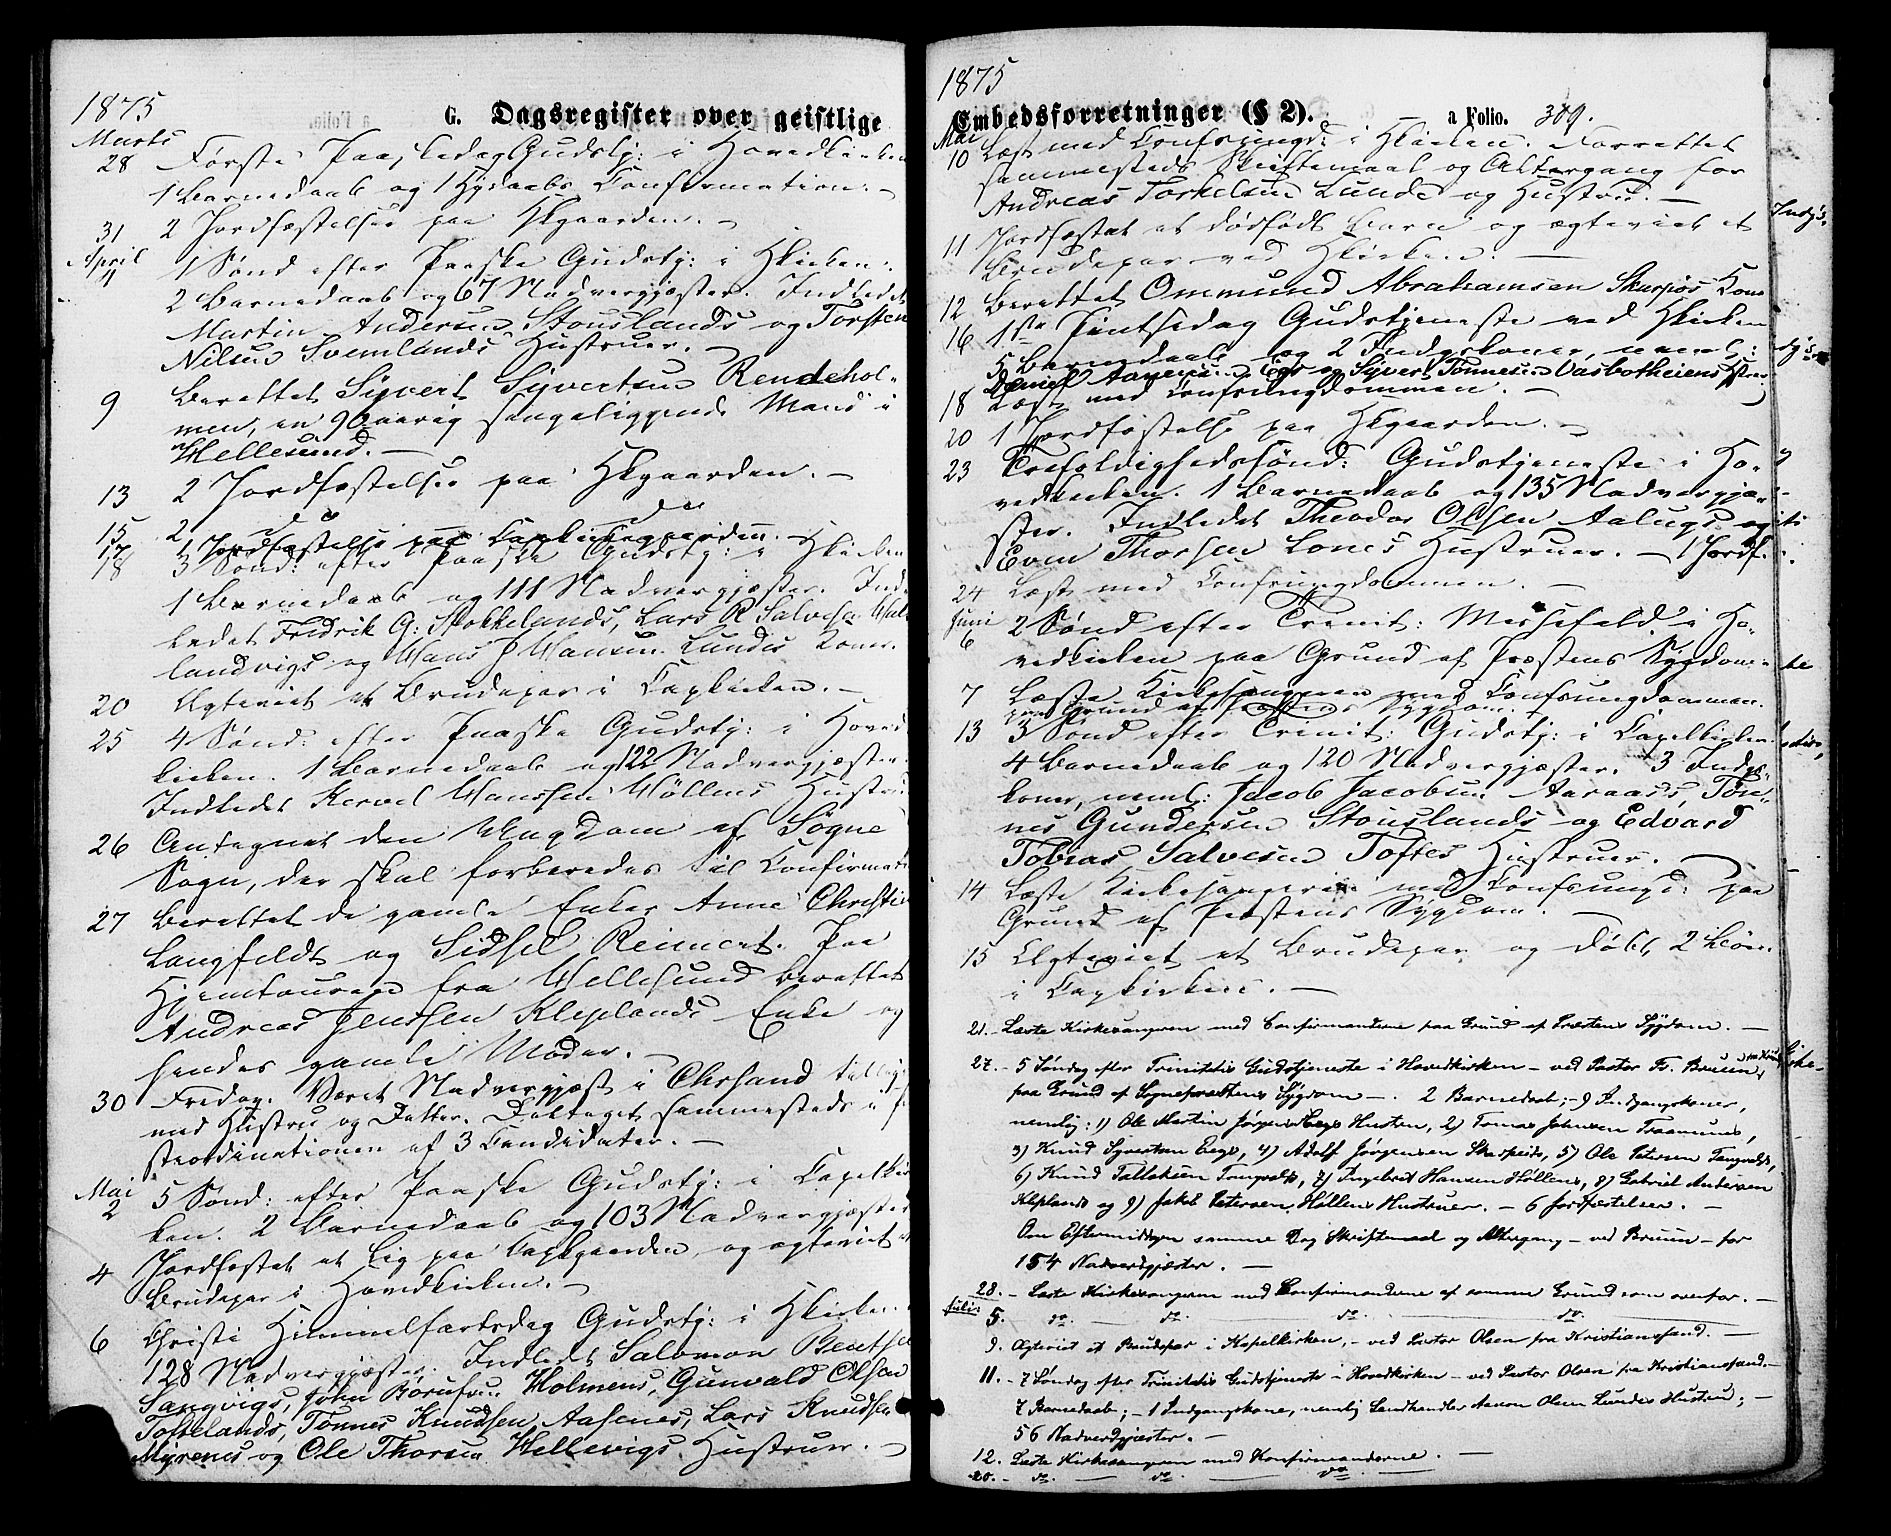 1875
G. Dagsregister over geistlige
Marts
28 Første Paaskedag Gudstj: i Hovedkirken
1 Barnedaab og 1 Hjdaabs Confirmation. –
31 2 Jordfæstelser paa Hkgaarden. –
April
4 1 Sønd efter Paaske Gudstj: i Hkirken.
2 Barnedaab og 67 Nadvergjæster. Indledet
Martin Andersen Stouslands og Torsten
Nilsen Svemlands Hustruer. –
9 Berettet Syvert Syvertsen Rendehol-
men, en 90 aarig sengeliggende Mand i
Hellesund. –
13 2 Jordfæstelser paa Hkgaarden. –
15 2 do do
17 1 Jordfæstelse paa Capkirkegaarden. –
18 3 Sønd: efter Paaske Gudstj: i Hkirken
1 Barnedaab og 111 Nadvergjæster. Ind-
ledet Fredrik G: Stokkelands, Lars R Salvesen
landvigs og Hans J Hansen Lundes Koner.
20 Ægteviet et Brudepar i Capkirken. –
25 4 Sønd: efter Paaske Gudstj: i Hoved
kirken. 1 Barnedaab og 122 Nadvergjæster.
Indledet Kervel Hanssen Höllens Hustru
26 Antegnet den Ungdom af Søgne
Sogn, der skal forberedes til Confirmat
27 Berettet de gamle Enker Anne Christi
Langfeldt og Sidsel Reinert. Paa
Hjemtouren fra Hellesund berettet
Andreas Jenssen Kleplands Enke og
hendes gamle Moder. –
30 Fredag. Været Nadvergjæst i Chrsand tillige
med Hustru og Datter. Deltaget sammesteds i
stordinationen af 3 Candidater. –
Mai
2 5 Sønd: efter Paaske Gudstj: i Capelkir
ken. 2 Barnedaab og 103 Nadvergjæster
4 Jordfæstet et Lig paa Capkgaarden og ægteviet et
Brudepar i Hovedkirken. –
6 Christi Himmelfartsdag Gudstj: i Hkirken
128 Nadvergjæster. Indledet Salomon Bentsen
Langvigs, John Börufsen Holmens, Gunvald Olsen
Toftelands, Tönnes Knudsen Aasenes, Lars Knudsen
Myrenes og Ole Thorsen Hellevigs Hustruer. –
1875
Embedsforretninger (§ 2). a Folio. 309.
Mai
10 Læst med Confrmungd: i Hkirken. Forrettet
sammesteds Skriftemaal og Altergang for
Andreas Torkelsen Lunde og Hustru. –
11 Jordfæstet et dødfødt Barn og ægteviet et
Brudepar ved Hkirken. –
12 Berettet Ommund Abrahamsen Skarpös Kone
16 1ste Pintsedag Gudstjeneste ved Hkirken
5 Barnedaab og 2 Indgskoner, neml:
Daniel Aanensen Eegs og Syvert Tönnesen Vasbotheiens Hstruer
18 Læst med Confrmungdommen. –
20 1 Jordfæstelse paa Hkgaarden. –
23 Trefoldighedssønd: Gudstjeneste i Ho-
vedkirken. 1 Barnedaab og 135 Nadvergjæ-
ster. Indledet Theodor Olsen Aalugs og
Even Thorsen Lones Hustruer. – 1 Jordf.
24 Læst med Confrmungdommen. –
Juni
6 2 Sønd efter Trinit: Messefald i Ho-
vedkirken paa Grund af Præstens Sygdom
7 Læste Kirkesangeren med Confrmungdommen
paa Grund af Præstens Sygdom.
13 3 Sønd efter Trinit: Gudstj: i Capelkirken
4 Barnedaab og 120 Nadvergjæster. 3 Indgs-
koner, neml: Jacob Jacobsen Aaraas's, Tön-
nes Gundersen Stouslands og Edvard
Tobias Salvesen Toftes Hustruer. –
14 Læste Kirkesangeren med Confrmungd: paa
Grund af Præstens Sygdom. –
15 Ægteviet et Brudepar og døbt 2 Börn
i Capkirken. –
21. – Læste Kirkesangeren med Confirmanderne paa Grund af Præstens Sygdom. –
27. – 5 Søndag efter Trinitatis Gudstjeneste i Hovedkirken – ved Pastor Fr. Bruun,
paa Grund af Sognepræstens Sygdom –. 2 Barnedaab; – 9 Indgangskoner,
nemlig: 1) Ole Martin Jørgensen Eegs Hustru, 2) Tomas Johnsen Traanunes,
3) Knud Syvertsen Eegs, 4) Adolf Jørgensen Skarpeids, 5) Ole Petersen Tangvalds,
6) Knud Tallaksen Tangvalds, 7) Ingebret Hansen Høllens, 8) Gabriel Andersen
Kleplands og 9) Jakob Petersen Høllens Hustruer. – 6 Jordfæstelser. –
Om Eftermiddagen samme Dag Skriftemaal og Altergang – ved Bruun – for
154 Nadverdgjæster. –
28. – Læste Kirkesangeren med Confirmanderne af samme Grund som ovenfor. –
Juli:
5. do. do. do. do.
9. Ægteviet et Brudepar i Kapelkirken, – ved Pastor Olsen fra Kristianssand. –
11. – 7 Søndag efter Trinitatis Gudstjeneste i Hovedkirken – ved Pastor Olsen fra Kristianssand. –
7 Barnedaab; – 1 Indgangskone, nemlig Landhandler Aanon Olsen Lundes Hustru; –
56 Nadverdgjæster. –
12. Læste Kirkesangeren med Konfirmanderne. –
20. – do. – do. – do. –